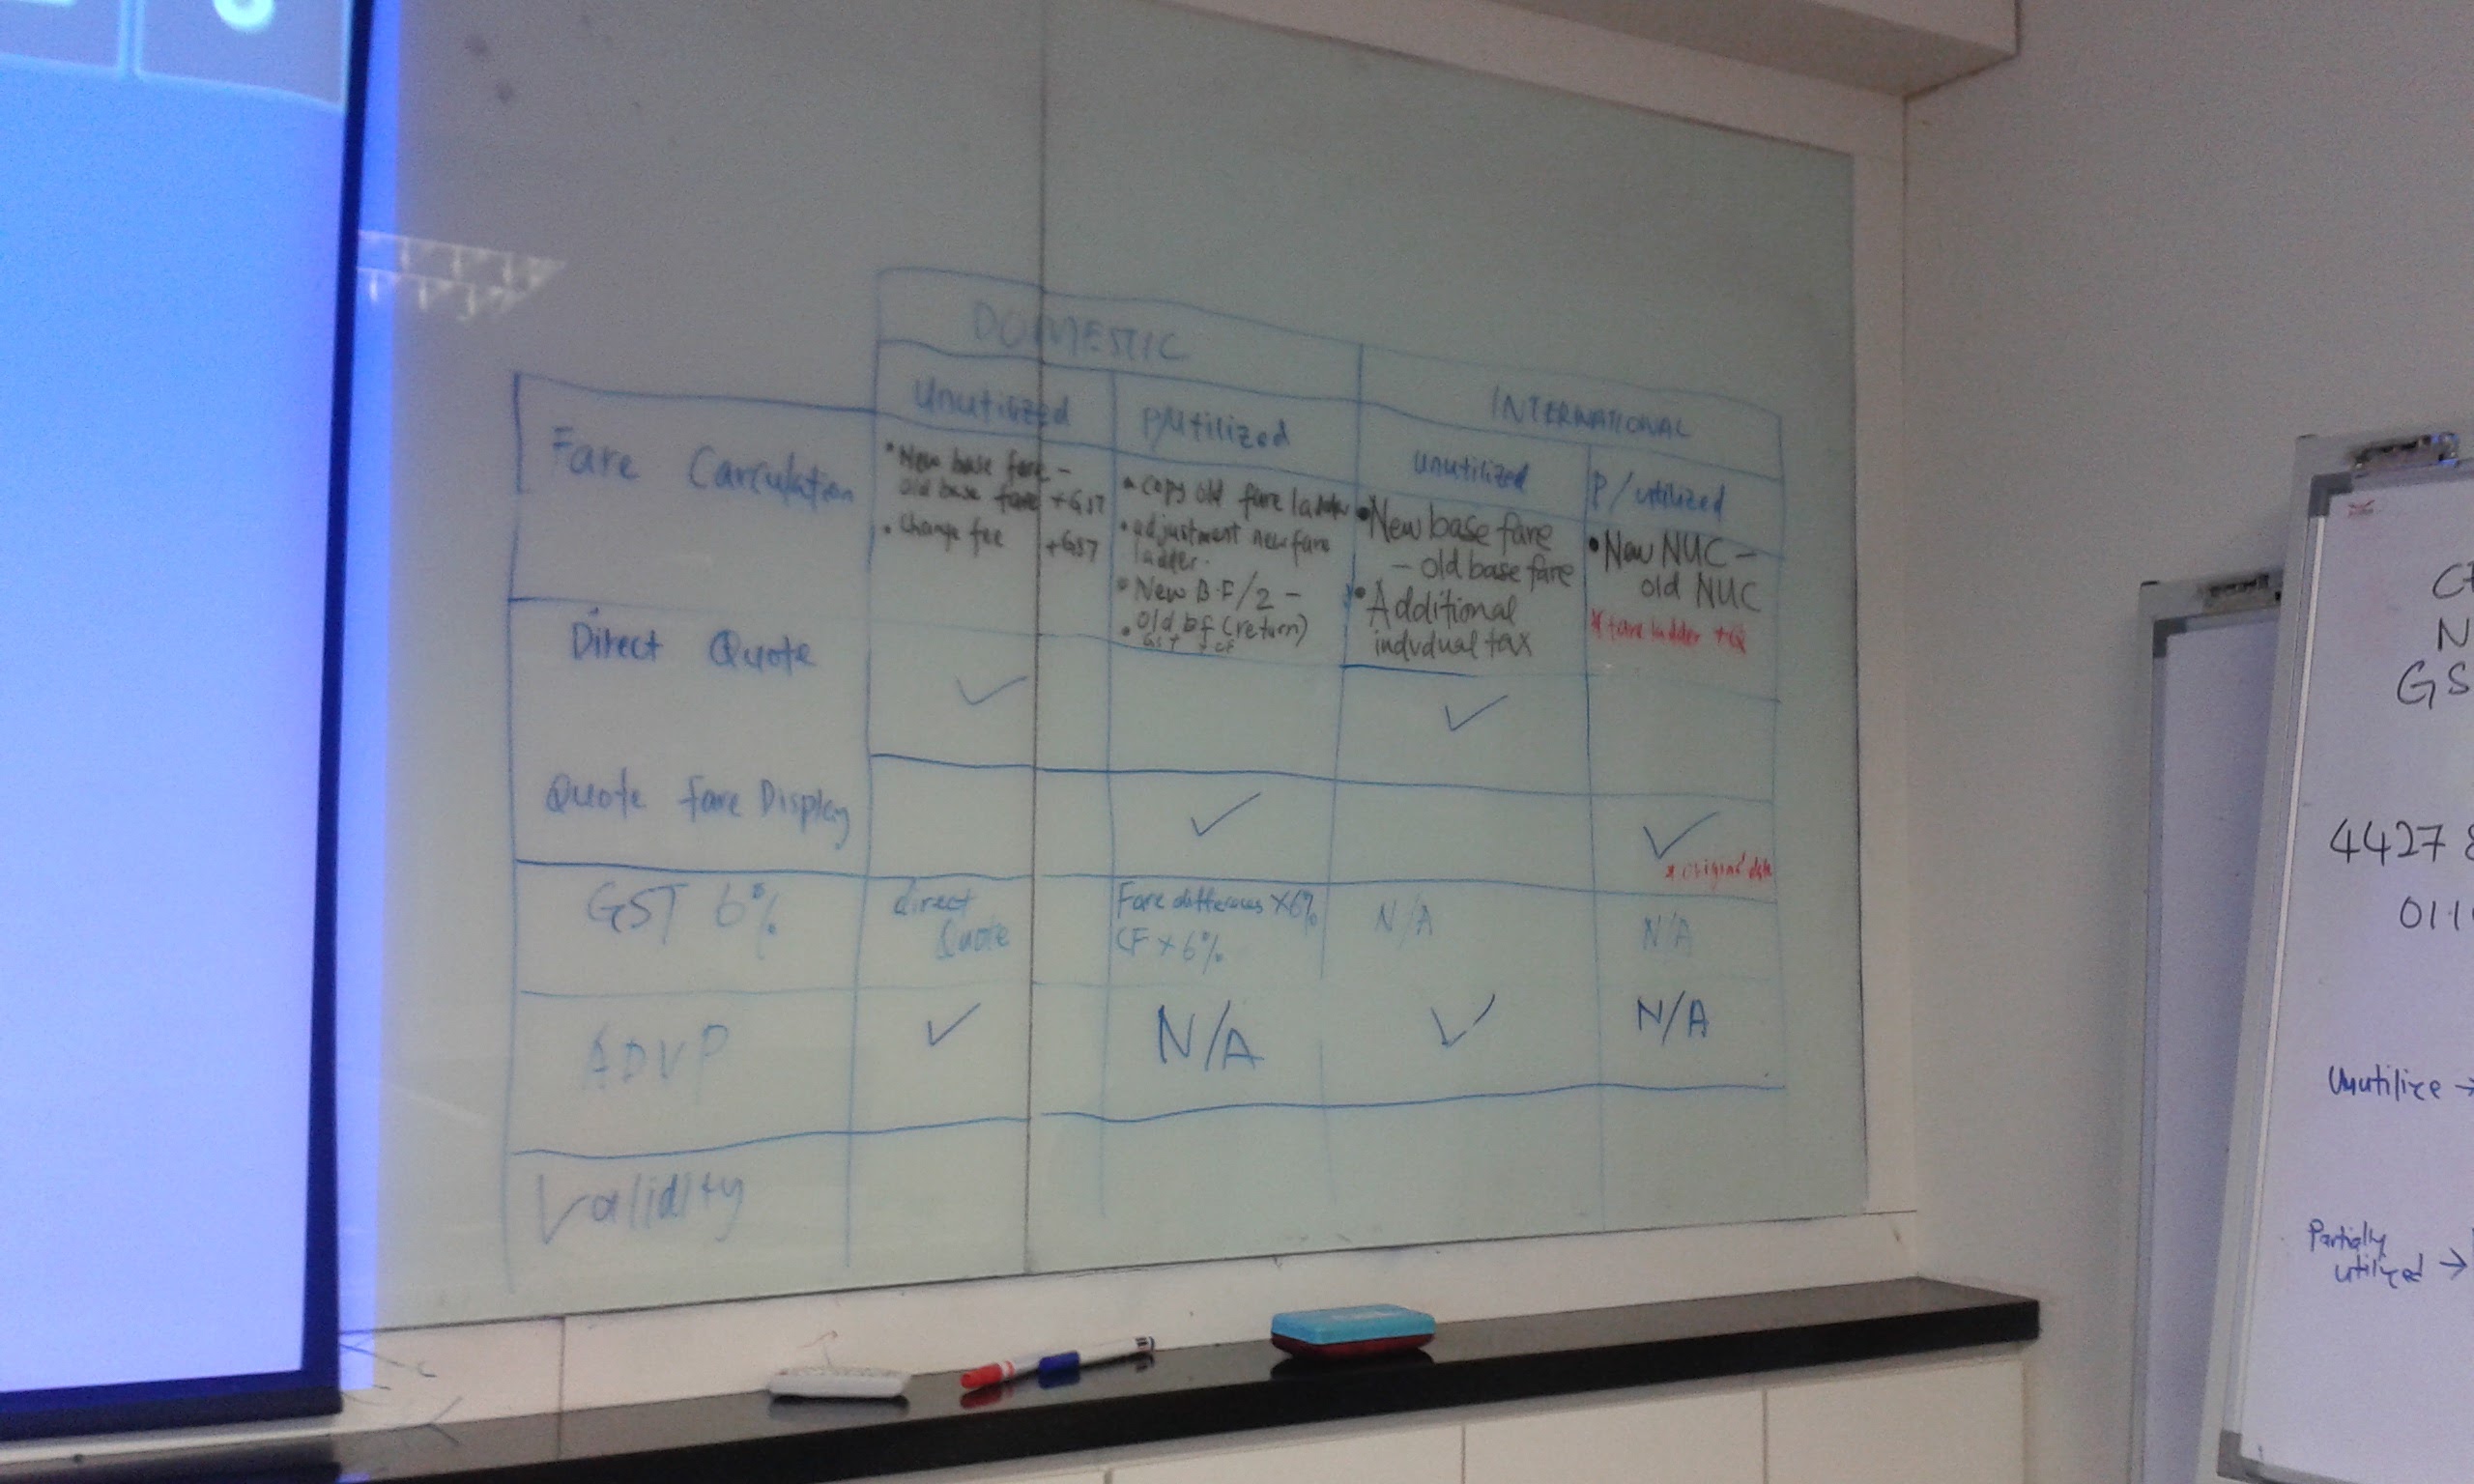 DOMESTIC
INTERNATIONAL
Unutilized
P/Utilized
unutilized
P/utilized
Fare Carculation
• New base fare -
old base fare +GST
• Change fee +GST
• copy old fare ladder
• adjustment new fare
ladder.
• New B.F/2 -
• old bf (return)
GST + CF
• New base fare
- old base fare
• Additional
indvdual tax
• New NUC -
old NUC
* fare ladder +Q
Direct Quote
✓
✓
Quote fare Display
✓
✓
* original date
GST 6%
direct
Quote
Fare differences x6%
CF x 6%
N/A
N/A
ADVP
✓
N/A
✓
N/A
Validity
GS
4427
011
Unutilize →
Partially
utilized →